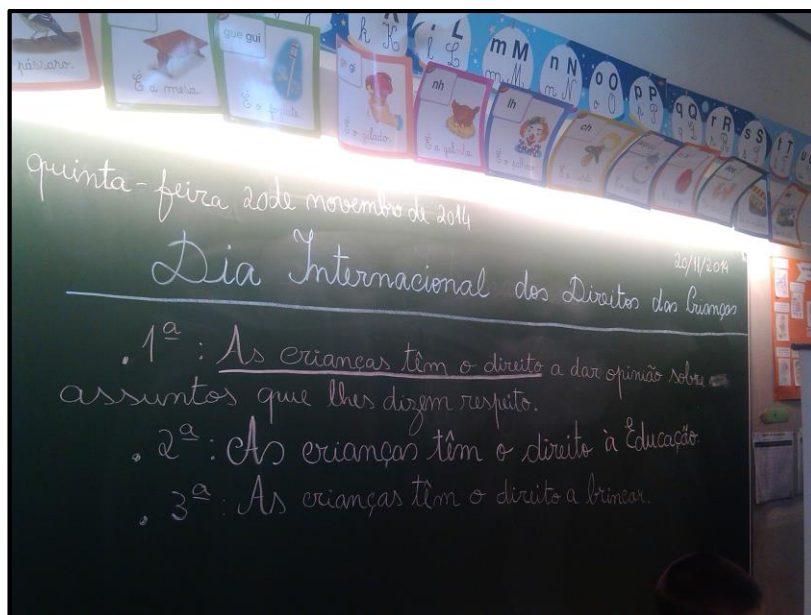 m M
n N
o O
p P
q Q
r R
s S
t T
pássaro.
É a mesa
gue gui
nh
lh
ch
quinta-feira 20 de novembro de 2014
20/11/2014
Dia Internacional dos Direitos das Crianças
. 1ª: As crianças têm o direito a dar opinião sobre
assuntos que lhes dizem respeito.
. 2ª: As crianças têm o direito à Educação.
. 3ª: As crianças têm o direito a brincar.